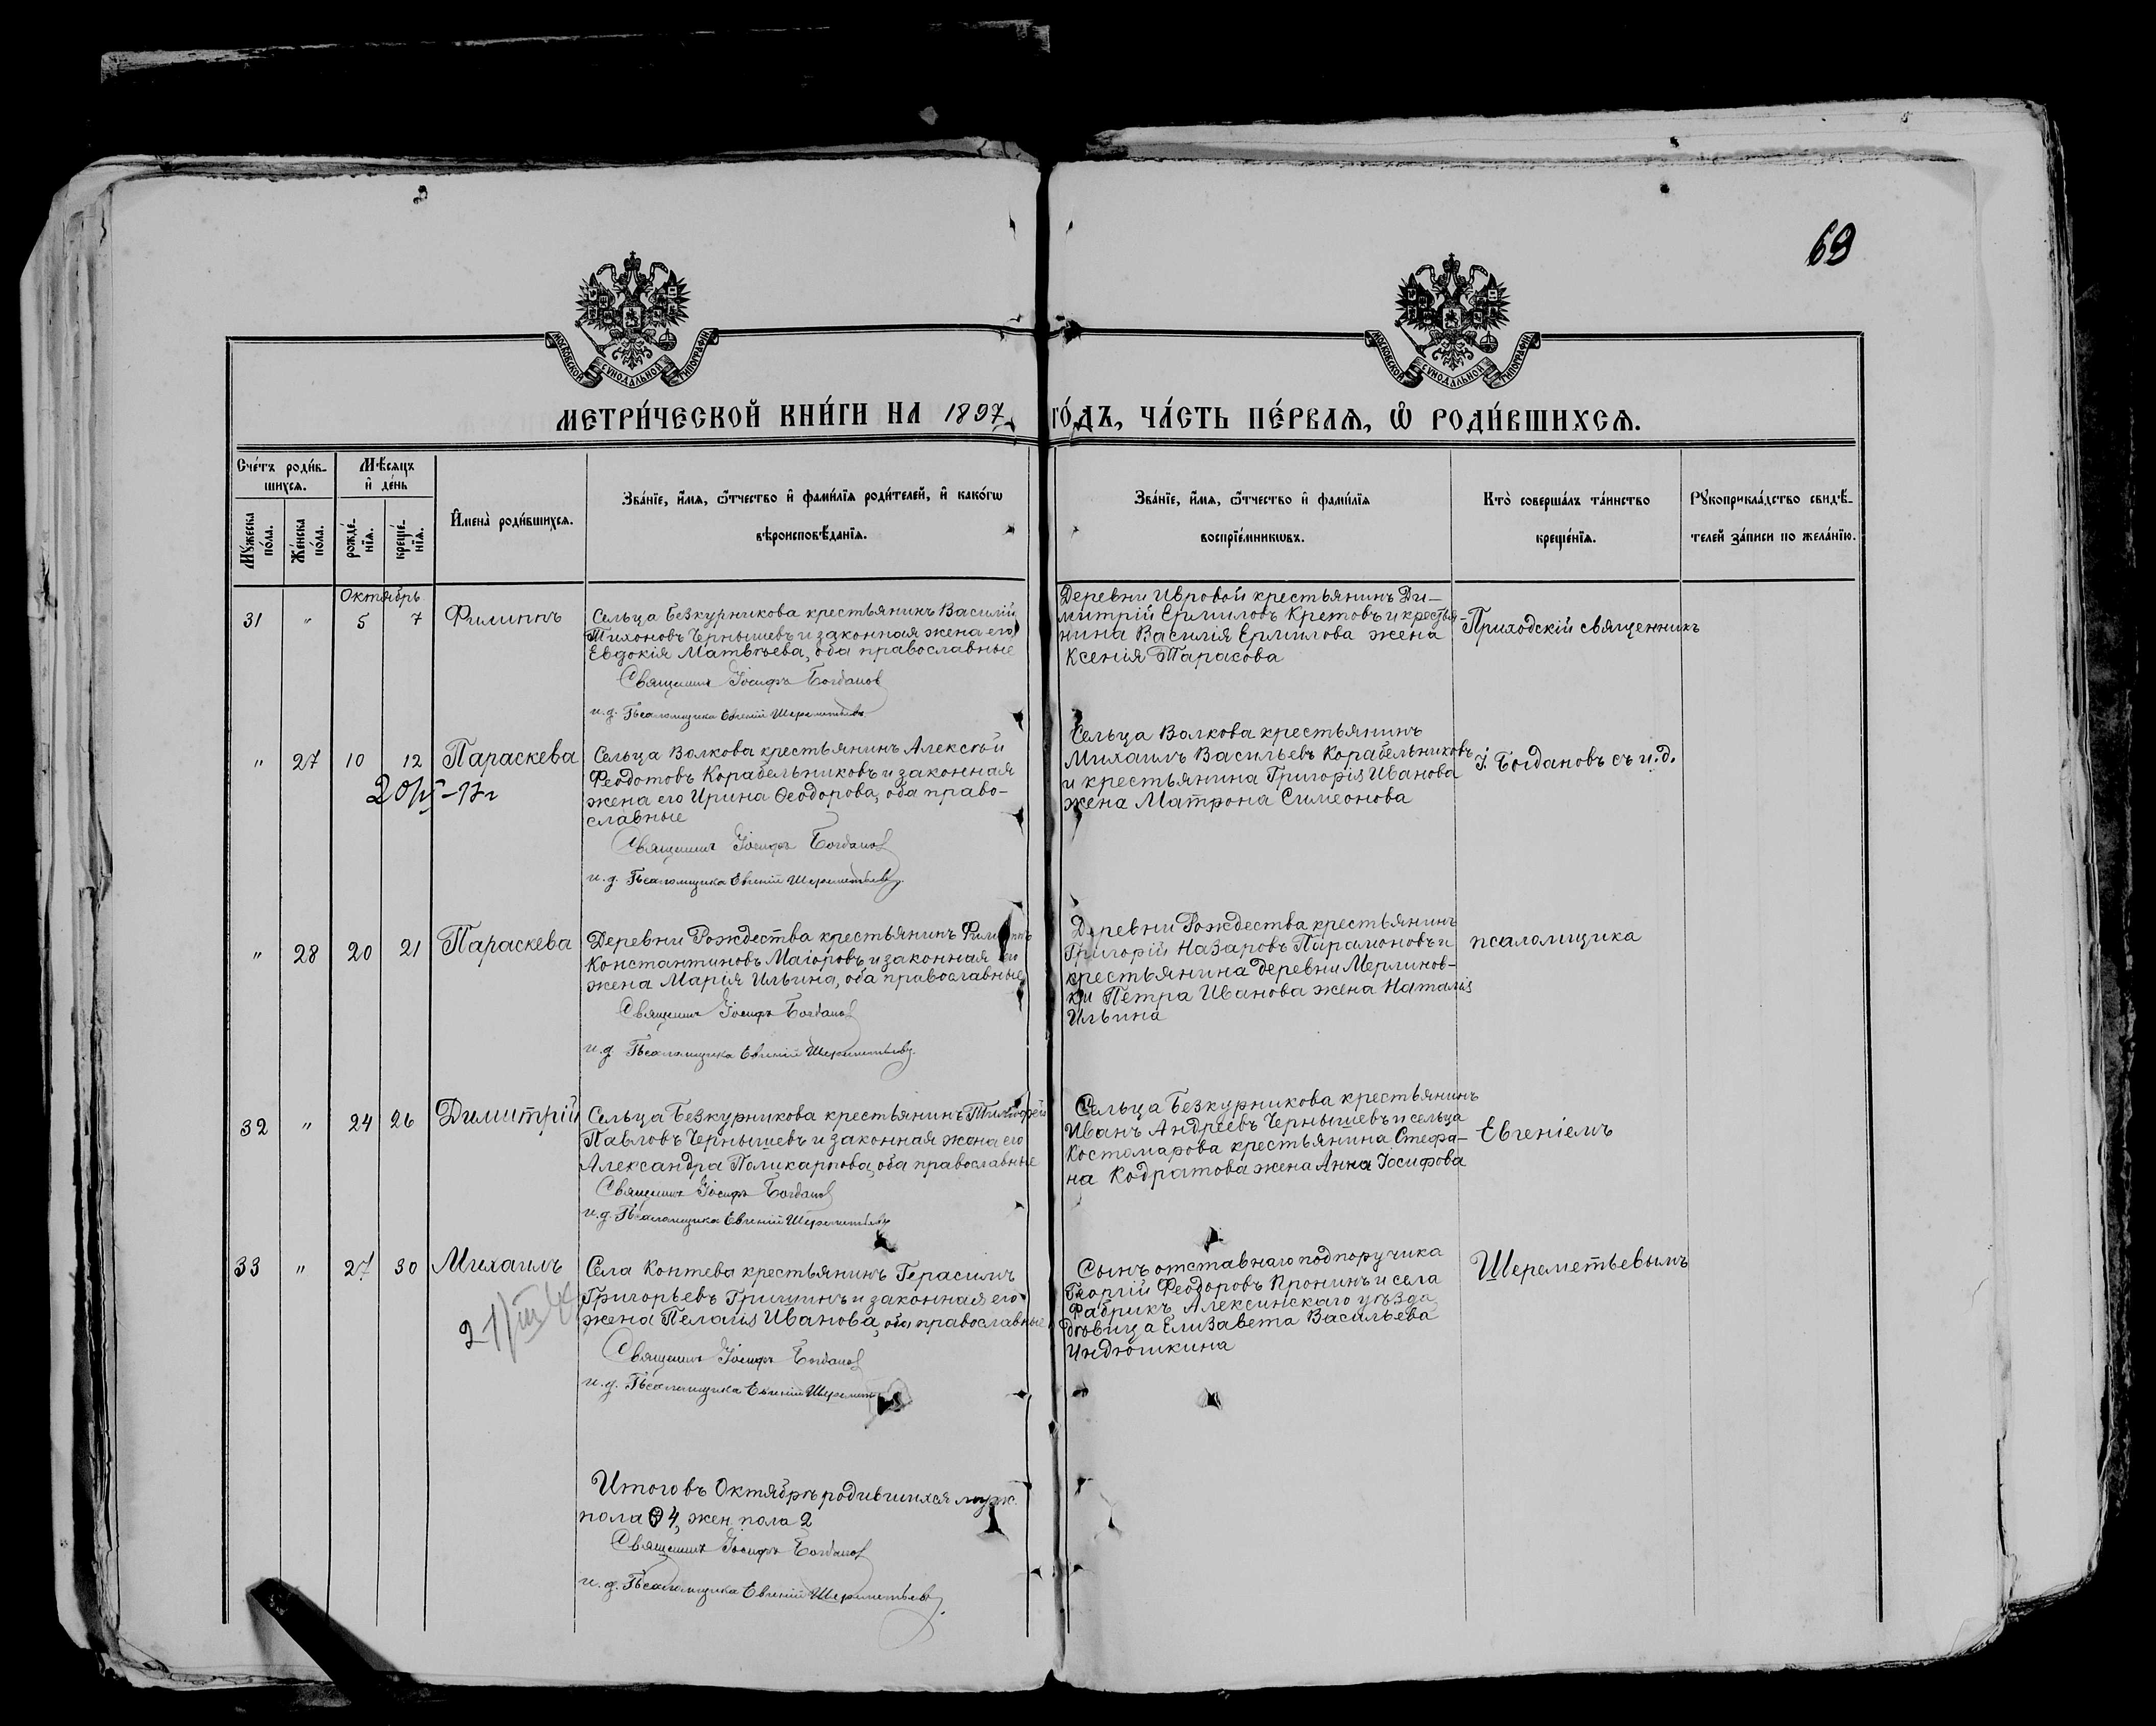 69
МОСКОВСКОЙ СУНОДАЛЬНОЙ ТИПОГРАФІИ
МОСКОВСКОЙ СУНОДАЛЬНОЙ ТИПОГРАФІИ
МЕТРИ́ЧЕСКОЙ КНИ́ГИ НА 1897 ГО́ДЪ, ЧА́СТЬ ПЕ́РВАѦ, Ѡ҆ РОДИ́ВШИХСѦ.
Сче́тъ роди́в-
шихсѧ.
Мꙋ́жеска по́ла.
Же́нска по́ла.
Мѣ́сѧцъ
и҆ де́нь
рожде́-
нїѧ.
креще́-
нїѧ.
И҆мена̀ роди́вшихсѧ.
Зва́нїе, и҆́мѧ, ѻ҆́тчество и҆ фами́лїѧ роди́телей, и҆ како́гѡ
вѣроисповѣ́данїѧ.
Зва́нїе, и҆́мѧ, ѻ҆́тчество и҆ фами́лїѧ
воспрїе́мникѡвъ.
Кто̀ соверша́лъ та́инство
креще́нїѧ.
Рꙋкоприкла́дство свидѣ́-
телей за́писи по жела́нїю.
Октябрь
31 " 5 7 Филиппъ
Сельца Безкурникова крестьянинъ Василій
Тихоновъ Чернышевъ и законная жена его
Евдокія Матвѣева, оба православные
Священникъ Іосифъ Богдановъ
и.д. Псаломщика Евгеній Шереметьевъ
Деревни Ивровой крестьянинъ Ди-
митрій Ермиловъ Кретовъ и крестья-
нина Василія Ермилова жена
Ксенія Тарасова
Приходскій священникъ
" 27 10 12 Параскева
Сельца Волкова крестьянинъ Алексѣй
Феодотовъ Корабельниковъ и законная
жена его Ирина Ѳеодорова, оба право-
славные
Священникъ Іосифъ Богдановъ
и.д. Псаломщика Евгеній Шереметьевъ
Сельца Волкова крестьянинъ
Михаилъ Васильевъ Корабельниковъ
и крестьянина Григорія Иванова
жена Матрона Симеонова
І. Богдановъ съ и.д.
" 28 20 21 Параскева
Деревни Рождества крестьянинъ Филиппъ
Константиновъ Маіоровъ и законная его
жена Марія Ильина, оба православные
Священникъ Іосифъ Богдановъ
и.д. Псаломщика Евгеній Шереметьевъ
Деревни Рождества крестьянинъ
Григорій Назаровъ Парамоновъ и
крестьянина деревни Мерлинов-
ки Петра Иванова жена Наталія
Ильина
псаломщика
32 " 24 26 Димитрій
Сельца Безкурникова крестьянинъ Тимофей
Павловъ Чернышевъ и законная жена его
Александра Поликарпова, оба православные
Священникъ Іосифъ Богдановъ
и.д. Псаломщика Евгеній Шереметьевъ
Сельца Безкурникова крестьянинъ
Иванъ Андреевъ Чернышевъ и сельца
Костомарова крестьянина Стефа-
на Кодратова жена Анна Іосифова
Евгеніемъ
33 " 27 30 Михаилъ
Села Коптева крестьянинъ Герасимъ
Григорьевъ Гришинъ и законная его
жена Пелагія Иванова, оба православные
Священникъ Іосифъ Богдановъ
и.д. Псаломщика Евгеній Шереметьевъ
Сынъ отставнаго подпоручика
Георгій Феодоровъ Пронинъ и села
Фабрикъ Алексинскаго уѣзда
дѣвица Елизавета Васильева
Индюшкина
Шереметьевымъ
Итого въ Октябрѣ родившихся муж.
пола 4, жен. пола 2
Священникъ Іосифъ Богдановъ
и.д. Псаломщика Евгеній Шереметьевъ